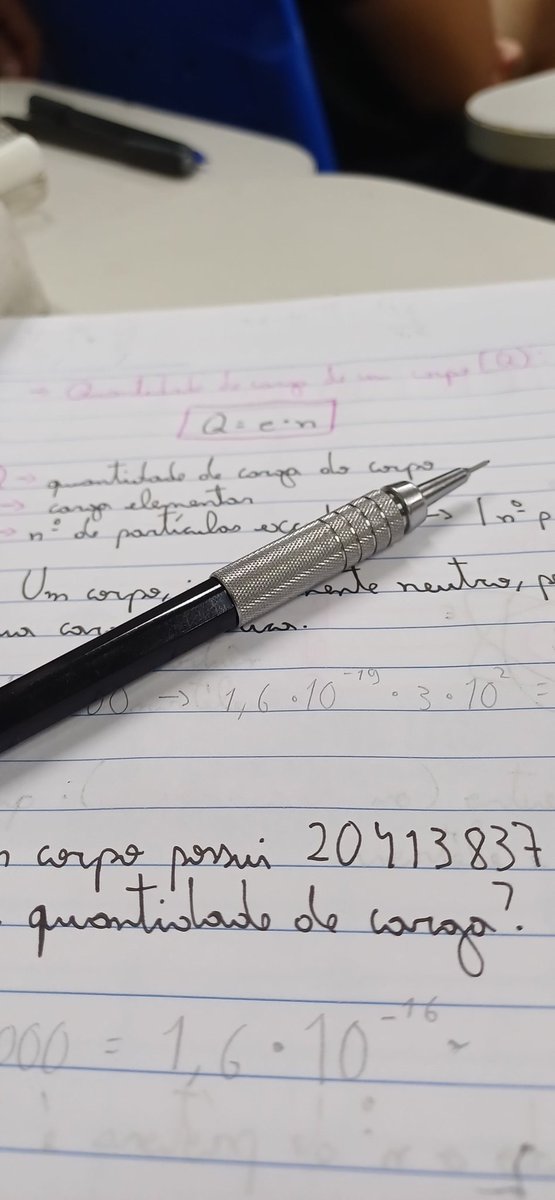 → Quantidade de carga de um corpo (Q)
Q = e · n
→ quantidade de carga do corpo
→ carga elementar
→ nº de partículas → | nº p
Um corpo, neutro,
→ 1,6 · 10⁻¹⁹ · 3 · 10² =
corpo possui 20413837
quantidade de carga?
000 = 1,6 · 10⁻¹⁶